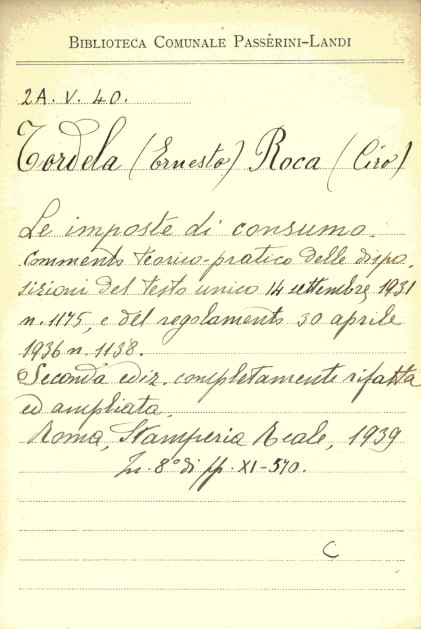 BIBLIOTECA COMUNALE PASSERINI-LANDI
2A. V. 40.
Tordela (Ernesto) Roca (Ciro)
Le imposte di consumo.
Commento teorico-pratico delle dispo,
sizioni del testo unico 14 settembre 1931
n. 1175, e del regolamento 30 aprile
1936 n. 1138.
Seconda ediz. completamente rifatta
ed ampliata.
Roma, Stamperia Reale, 1939
In. 8° di pp. XI-570.
C